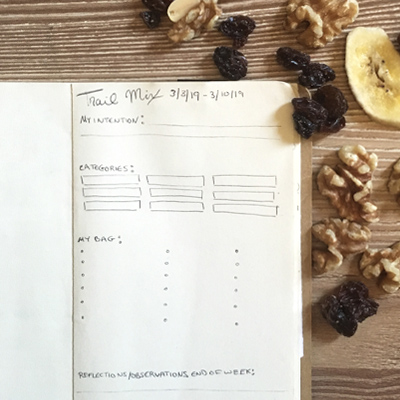 Trail Mix 3/3/19 - 3/10/19
MY INTENTION:
CATEGORIES:
MY BAG:
REFLECTIONS/OBSERVATIONS, END OF WEEK: